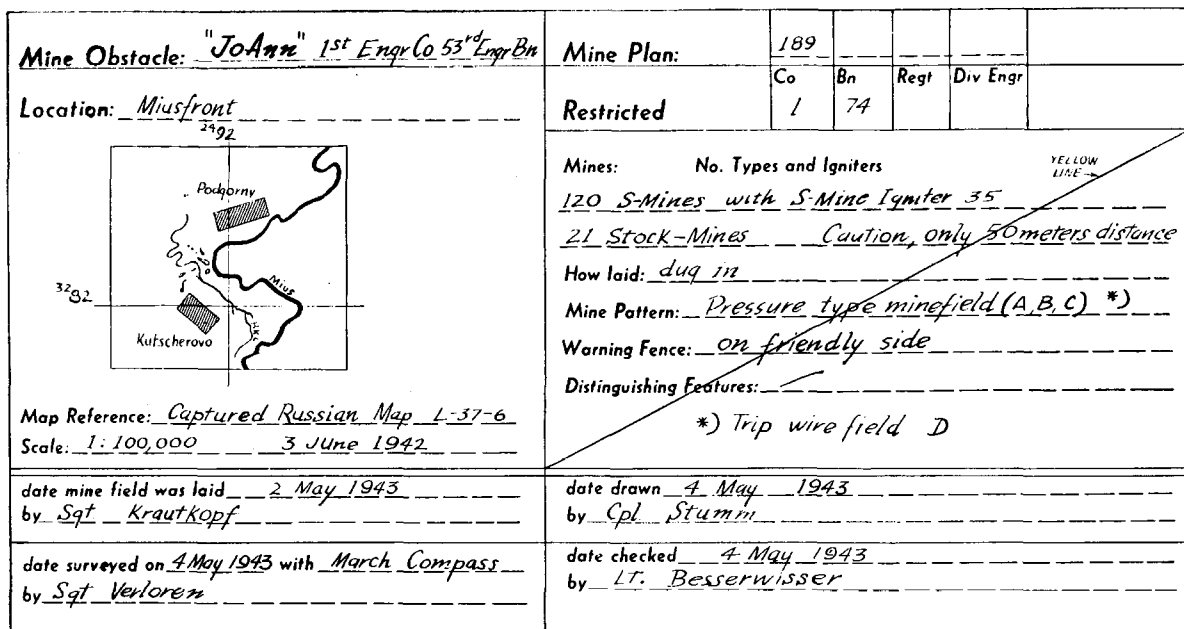 Mine Obstacle: "JoAnn" 1st Engr Co 53rd Engr Bn
Location: Miusfront
2492
Podgorny
Mius
3292
H.K.L.
Kutscherovo
Map Reference: Captured Russian Map L-37-6
Scale: 1:100,000 3 June 1942
Mine Plan: 189
Co Bn Regt Div Engr
Restricted 1 74
Mines: No. Types and Igniters
YELLOW
LINE→
120 S-Mines with S-Mine Igniter 35
21 Stock-Mines Caution, only 50 meters distance
How laid: dug in
Mine Pattern: Pressure type minefield (A, B, C) *)
Warning Fence: on friendly side
Distinguishing Features: —
*) Trip wire field D
date mine field was laid 2 May 1943
by Sgt Krautkopf
date drawn 4 May 1943
by Cpl Stumm
date surveyed on 4 May 1943 with March Compass
by Sgt Verloren
date checked 4 May 1943
by LT. Besserwisser